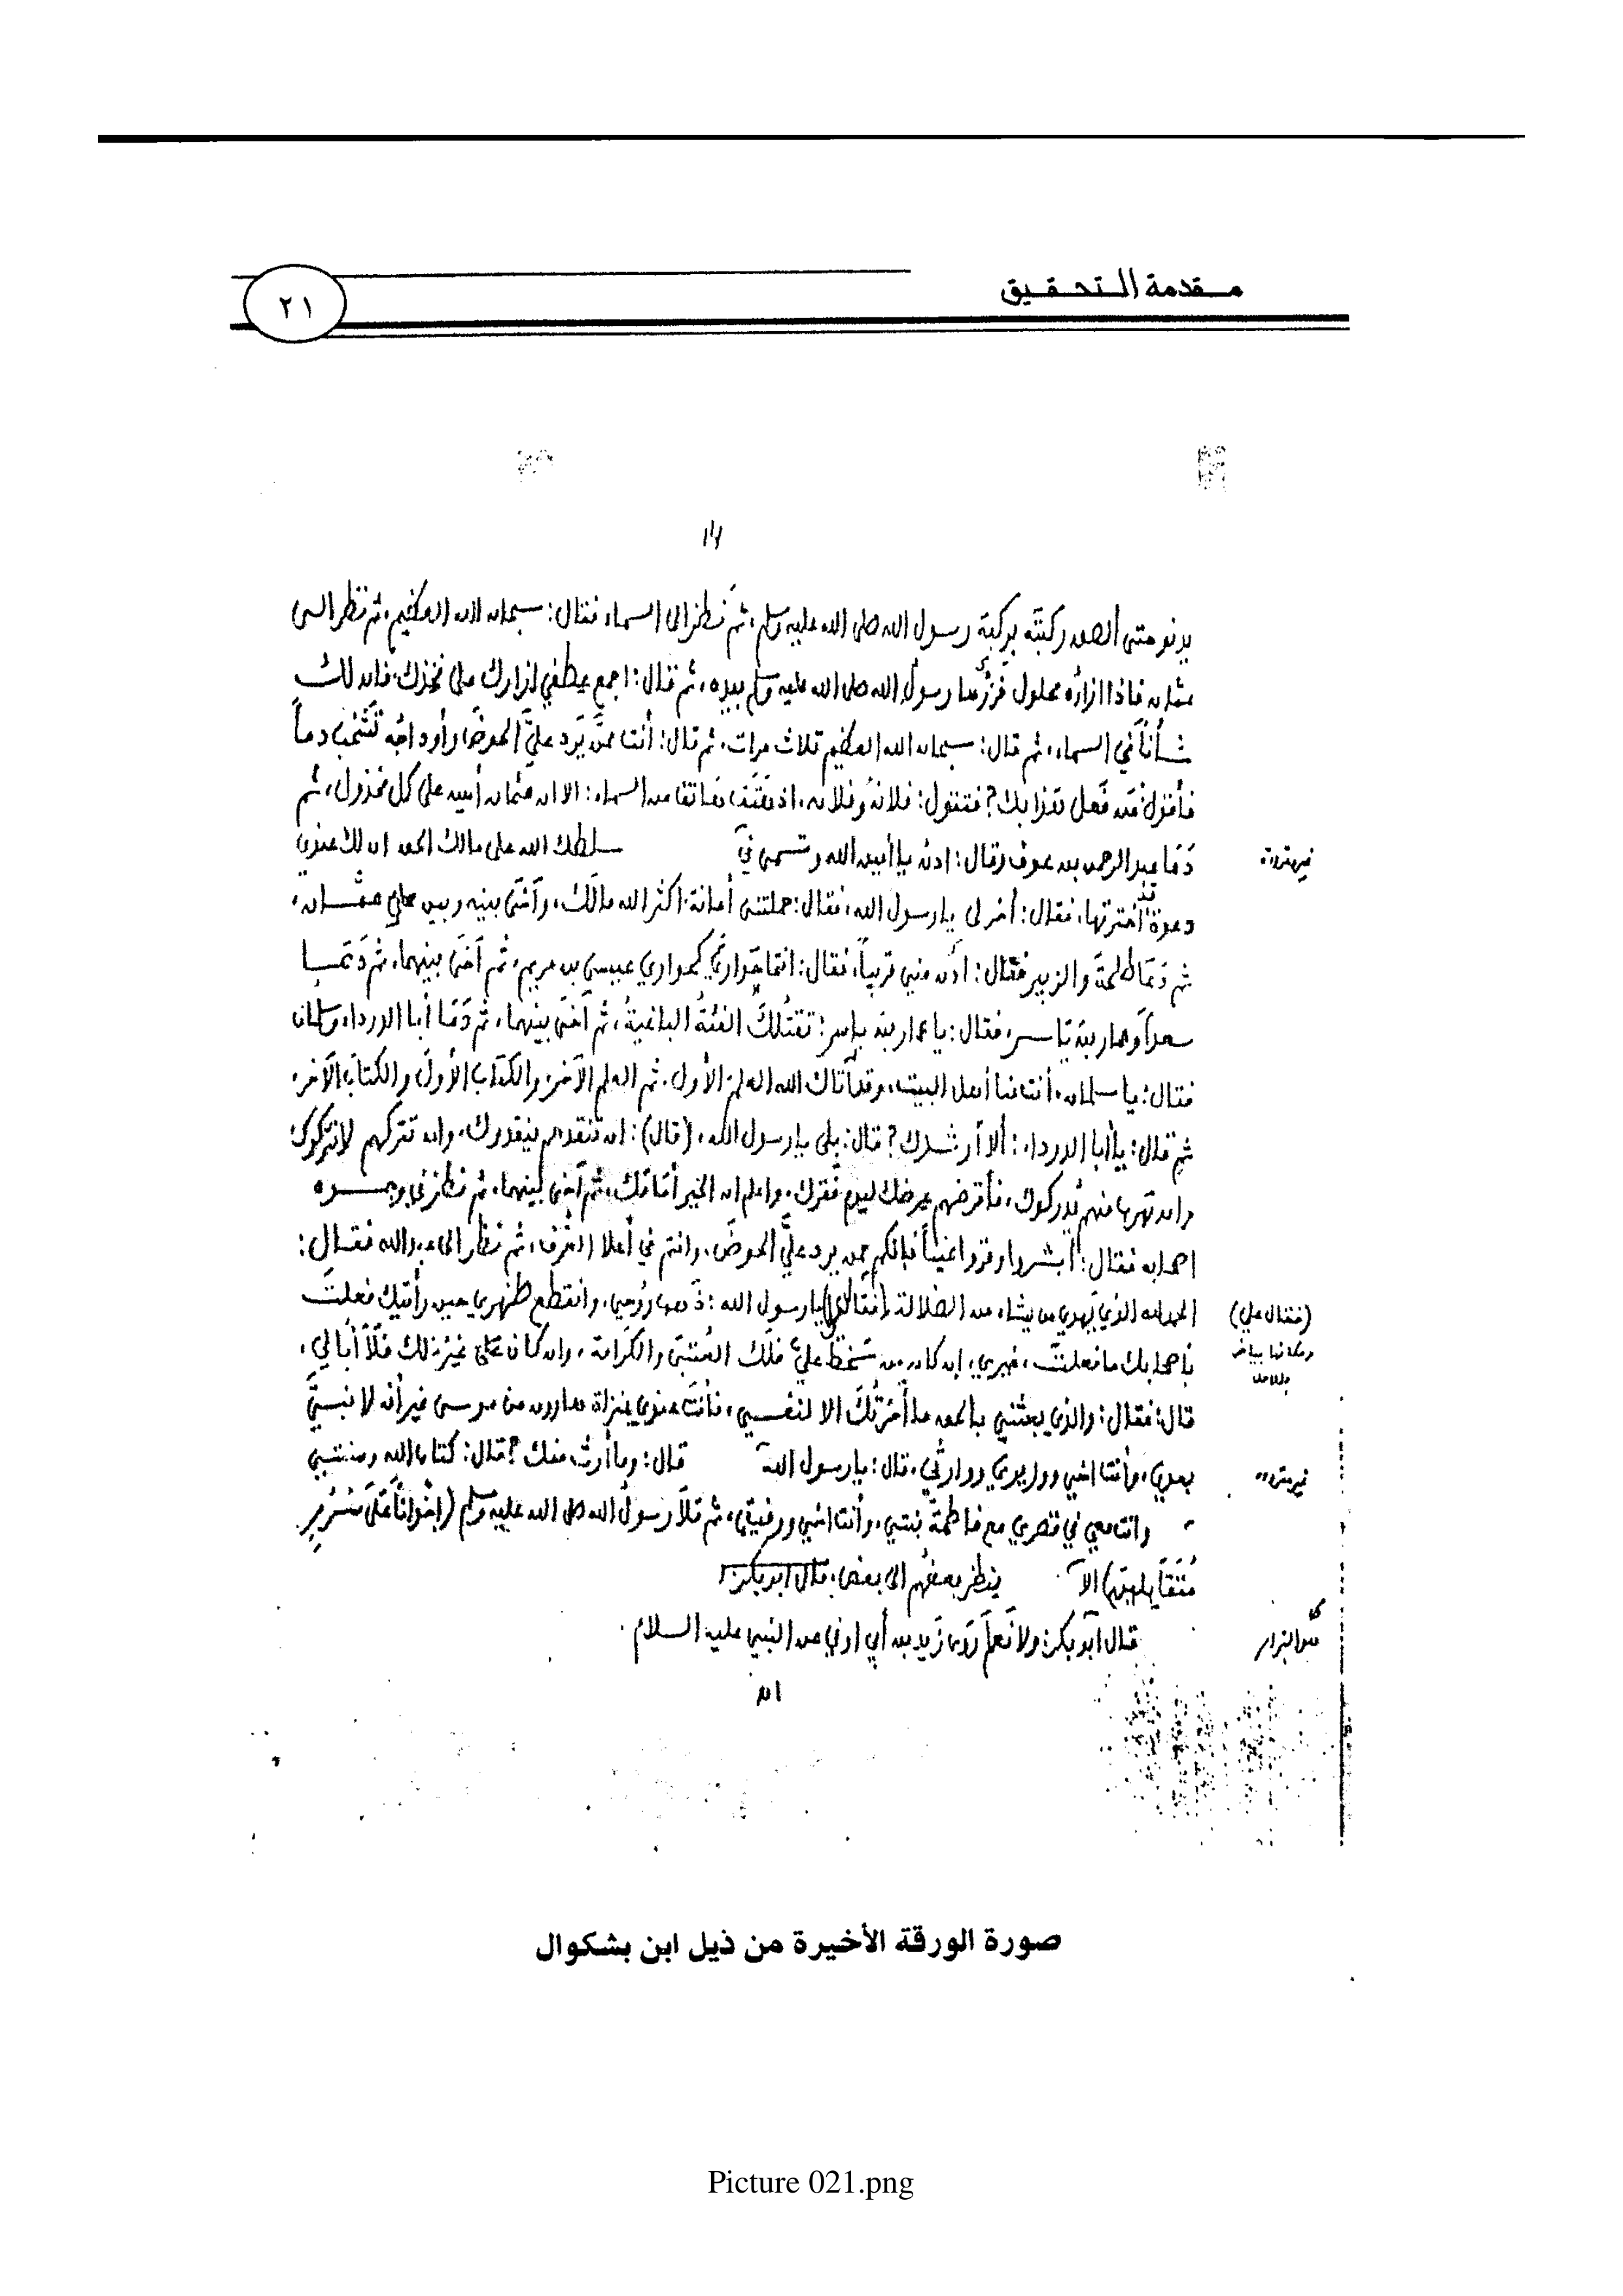 مقدمة التحقيق
٢١
يدنو حتى ألصق ركبته بركبة رسول الله صلى الله عليه وسلم، ثم نظر إلى السماء فقال: سبحان الله العظيم، ثم نظر الى
عثمان فاذا ازاره محلول فزرها رسول الله صلى الله عليه وسلم بيده، ثم قال: اجمع عطفي إزارك على نحرك فان لك
شأناً في السماء، ثم قال: سبحان الله العظيم ثلاث مرات، ثم قال: أنت ممن يرد عليّ الحوض وأوداجه تشخب دماً
فأقول من فعل هذا بك؟ فتقول: فلان وفلان، اذ هتف هاتف من السماء: الا ان عثمان أمين على كل مخذول، ثم
دعا عبد الرحمن بن عوف وقال: ادن يا أمين الله وتسمى في سلطك الله على مالك الحق ان لك عندي
غير مقروءة
دعوة قد أخترتها، فقال: أخر لي يا رسول الله، فقال: حملتني أمانة أكثر الله مالك، وآخى بينه وبين عثمان،
ثم دعا طلحة والزبير فقال: ادن مني قريباً، فقال: انتما حواريّ كحواري عيسى بن مريم، ثم آخى بينهما، ثم دعا
سعداً وعمار بن ياسر، فقال: يا عمار بن ياسر: تقتلك الفئة الباغية، ثم آخى بينهما، ثم دعا أبا الدرداء وسلمان
فقال: يا سلمان، أنت منا أهل البيت، وقد آتاك الله العلم الأول، ثم العلم الآخر، والكتاب الأول والكتاب الآخر،
ثم قال: يا أبا الدرداء: ألا أرشدك؟ قال: بلى يا رسول الله، (قال): ان تنقدهم ينقدوك، وان تتركهم لا يتركوك
وان تهرب منهم يدركوك، فأقرضهم عرضك ليوم فقرك، واعلم ان الخير أمامك، ثم آخى بينهما، ثم نظر في وجوه
اصحابه فقال: أبشروا وقروا عيناً فانكم ممن يرد عليّ الحوض، وانتم في أعلا الغرف، ثم نظر الى عبد الله فقال:
الحمد لله الذي يهدي من يشاء من الضلالة (فقال) يا رسول الله: ذهب روحي، وانقطع ظهري حين رأيتك فعلت
(فقال علي)
ومكانها بياض
بأصحابك ما فعلت، غيري، إن كان من سخط عليّ فلك العتبى والكرامة، وان كان على غير ذلك فلا أبالي،
قال: فقال: والذي بعثني بالحق ما أخرتك الا لنفسي، فأنت عندي بمنزلة هارون من موسى غير أنه لا نبي
بعدي، وأنت اخي ووزيري ووارثي، قال: يا رسول الله قال: وما أرث منك؟ قال: كتاب الله وسنة نبي
غير مقروء
وانت معي في قصري مع فاطمة بنتي، وأنت اخي ورفيقي، ثم تلا رسول الله صلى الله عليه وسلم (إخواناً على سرر
متقابلين) الا ينظر بعضهم الى بعض، قال ابو بكر:
قال أبو بكر: ولا نعلم روى زيد بن أبي اوفى عن النبي عليه السلام.
صورة الورقة الأخيرة من ذيل ابن بشكوال
Picture 021.png